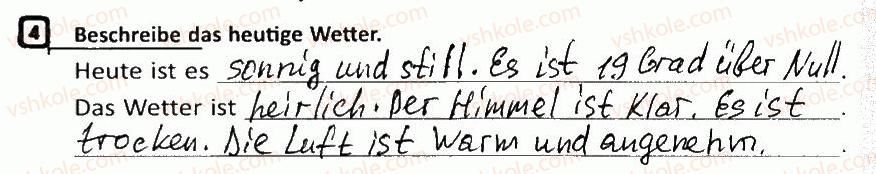 4 Beschreibe das heutige Wetter.
Heute ist es sonnig und still. Es ist 19 Grad über Null.
Das Wetter ist heirlich. Der Himmel ist Klar. Es ist
trocken. Die Luft ist Warm und angenehm.